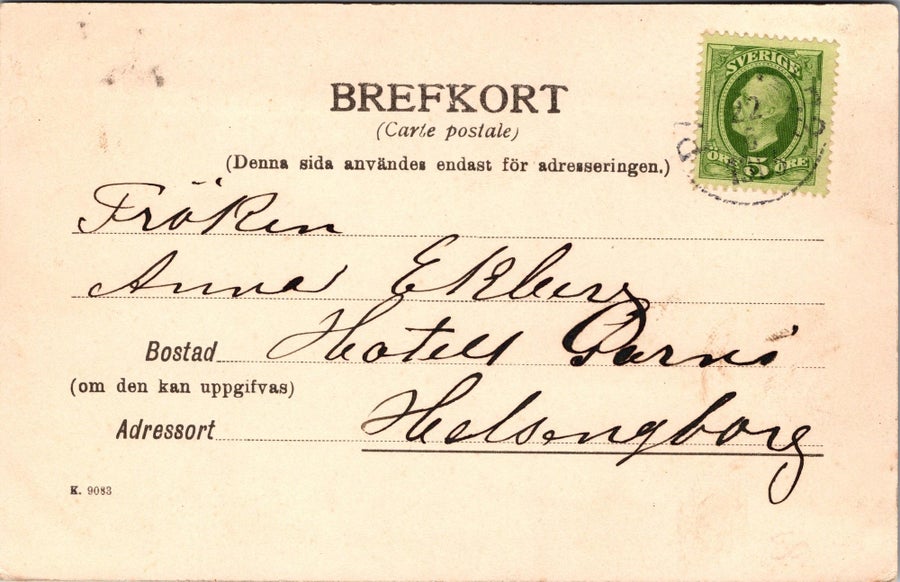 SVERIGE
ÖRE 5 ÖRE
22
BREFKORT
(Carte postale)
(Denna sida användes endast för adresseringen.)
Fröken
Anna Ekberg
Bostad Hotell
(om den kan uppgifvas)
Adressort Helsingborg
K. 9083